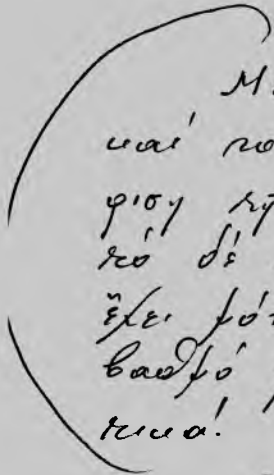 Μ
καί το
φιση τη
τό δέ
ἔχει μότ
βαθμό
τικα!